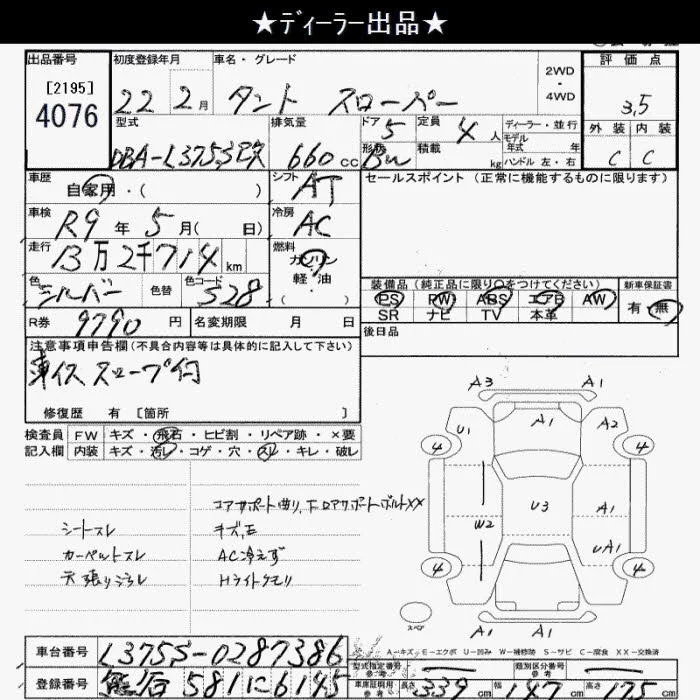 ★ディーラー出品★
出品番号 初度登録年月 車名・グレード 2WD ・ 4WD 評価点
[2195]
4076 22 2月 タント スローパー 3,5
型式 排気量 ドア 定員 ディーラー・並行 外装 内装
DBA-L375S改 660cc 5 4人 モデル年式 年 C C
形状 Bν 積載 kg ハンドル 左・右
車歴 自家用・( ) シフト AT セールスポイント(正常に機能するものに限ります)
車検 R9年 5月( 日) 冷房 AC
走行 13万2千714km 燃料 ガソリン・軽・油・( )
色 シルバー 色替 色コード S28
装備品(純正品に限り○をつけてください) 新車保証書
PS PW ABS エアB AW 有・無
SR ナビ TV 本革
R券 9790円 名変期限 月 日 後日品
注意事項申告欄(不具合内容等は具体的に記入して下さい)
車イス スロープ付
修復歴 有 [箇所 ]
検査員 FW キズ・飛石・ヒビ割・リペア跡・×要
記入欄 内装 キズ・汚レ・コゲ・穴・スレ・キレ・破レ
コアサポート曲り、下ロアサポートボルトXX
シートスレ キズ、E
カーペットスレ AC冷えず
天張りシミレ Hライトクモリ
A3 A1
U1 A1 A2
4 4
U3 A1
W2 UA1
4 4
スペア
A1 A1
A-キズ E-エクボ U-凹み W-補修跡 S-サビ C-腐食 XX-交換済
車台番号 L375S-0287386 型式指定番号(ご参考) 類別区分番号(ご参考)
登録番号 熊谷 581に6145 車庫証明用参考 長さ 339cm 幅 147cm 高さ 175cm